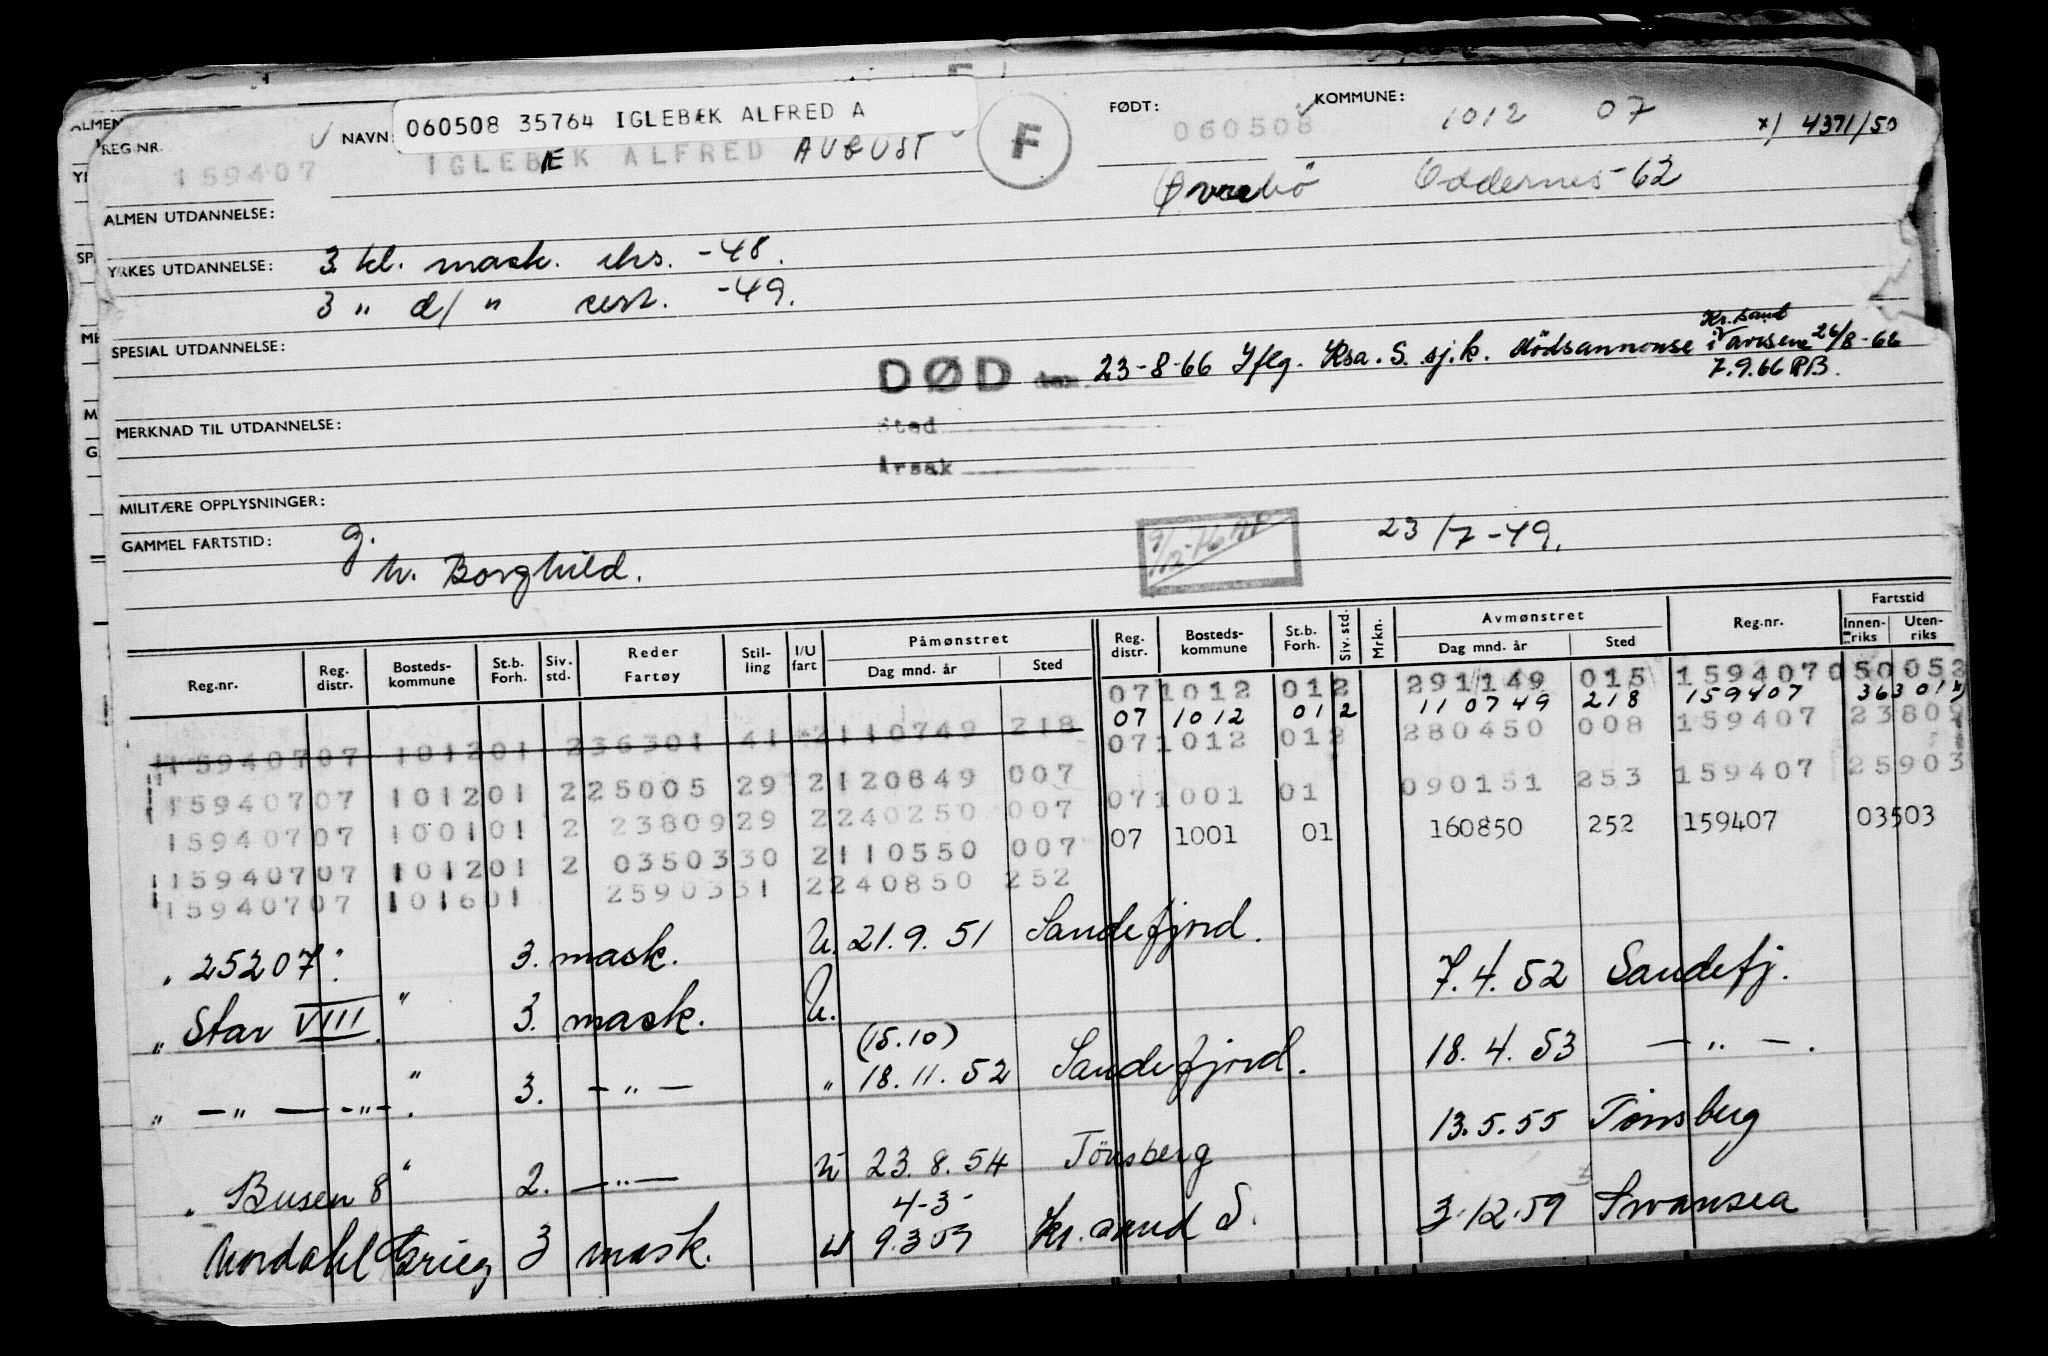 060508 35764 IGLEBÆK ALFRED A
REG.NR. NAVN: FØDT: KOMMUNE:
159407 IGLEBÆK ALFRED AUGUST F 060508 1012 07 x) 4371/50
Øvrebö Oddernes-62
ALMEN UTDANNELSE:
YRKES UTDANNELSE: 3 kl. mask. eks. -48.
3 " d/ " cert. -49.
SPESIAL UTDANNELSE:
DØD den 23-8-66 Iflg. Krsa. S. sj.k. dödsannonse i Kr.sand avisen 26/8-66
7.9.66 RB.
MERKNAD TIL UTDANNELSE: Sted
Årsak
MILITÆRE OPPLYSNINGER:
GAMMEL FARTSTID: g. 23/7-49.
h. Borghild.
Reg.nr. Reg. distr. Bosteds-kommune St.b. Forh. Siv. std. Reder Fartøy Stil-ling I/U fart Påmønstret Dag mnd. år Sted Reg. distr. Bosteds-kommune St.b. Forh. Siv. std. Mrkn. Avmønstret Dag mnd. år Sted Reg.nr. Fartstid Innen-riks Uten-riks
07 1012 01 2 291149 015 159407 050052
07 1012 01 2 110749 218 159407 36301 x)
159407 07 1012 01 2 36301 41 2 110749 218 07 1012 01 2 280450 008 159407 23809
159407 07 1012 01 2 25005 29 2 120849 007 07 1001 01 090151 253 159407 25903
159407 07 1001 01 2 23809 29 2 240250 007 07 1001 01 160850 252 159407 03503
159407 07 1012 01 2 03503 30 2 110550 007
159407 07 1016 01 25903 31 2 240850 252
" 25207 " 3. mask. U. 21.9.51 Sandefjord. 7.4.52 Sandefj.
" Star VIII. " 3. mask. U.
(15.10)
" — " — — " — . " 3. — " — " 18.11.52 Sandefjord. 18.4.53 — " — .
" Busen 8 " 2. — " — U 23.8.54 Tönsberg 13.5.55 Tönsberg
4-3-
Nordahl Grieg 3 mask. U 9.3.59 Kr.sand S. 3.12.59 Swansea